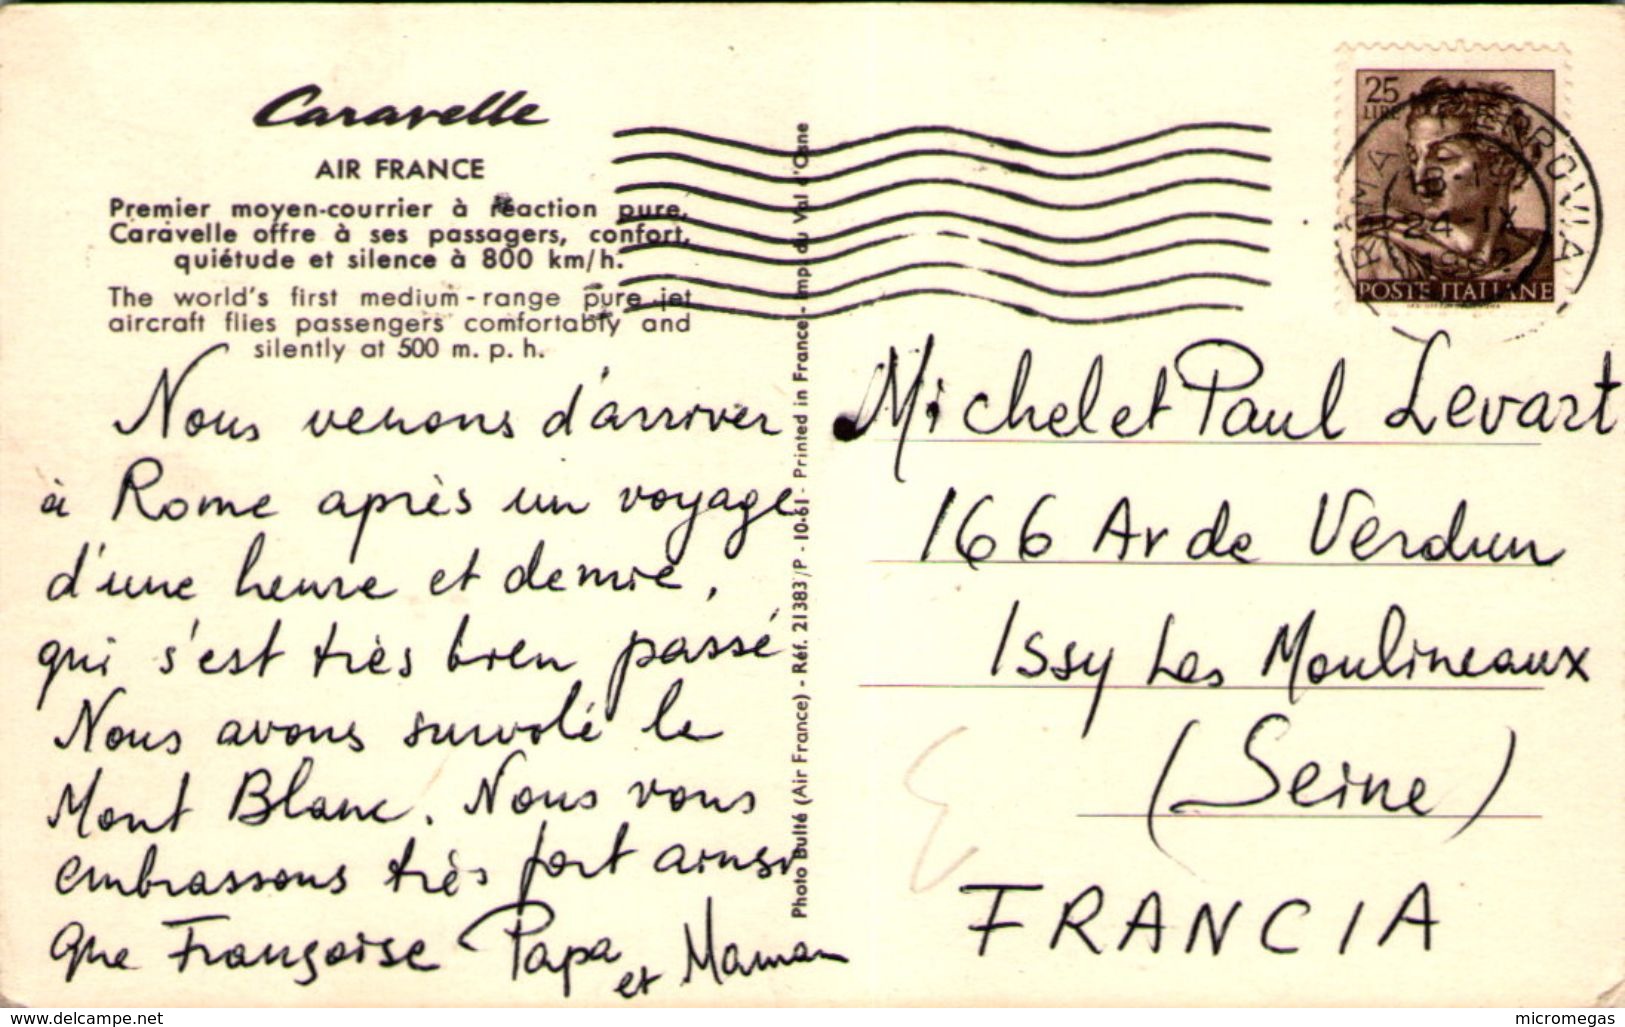 Caravelle
AIR FRANCE
Premier moyen-courrier à réaction pure,
Caravelle offre à ses passagers, confort,
quiétude et silence à 800 km/h.
The world's first medium-range pure jet
aircraft flies passengers comfortably and
silently at 500 m. p. h.
Nous venons d'arriver
à Rome après un voyage
d'une heure et demie,
qui s'est très bien passé
Nous avons survolé le
Mont Blanc. Nous vous
embrassons très fort ainsi
que Françoise Papa et Maman
Photo Bulté (Air France) - Réf. 21383/P - 10-61 - Printed in France - Imp. du Val d'Osne
25
LIRE
POSTE ITALIANE
ROMA FERROVIA
24 IX
1962
Michel et Paul Levart
166 Av de Verdun
Issy Les Moulineaux
(Seine)
FRANCIA
www.delcampe.net
micromegas